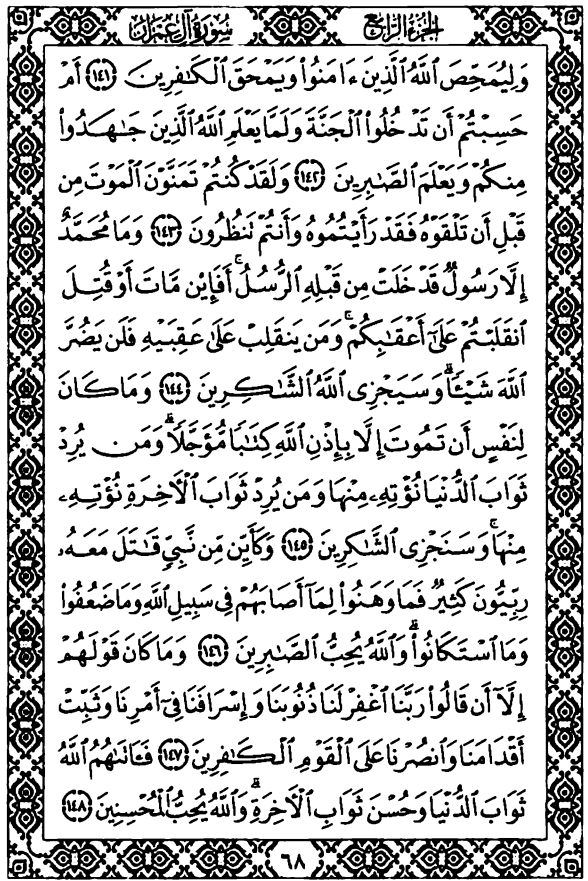 الجزء الرابع سورة آل عمران
وَلِيُمَحِّصَ ٱللَّهُ ٱلَّذِينَ ءَامَنُوا۟ وَيَمْحَقَ ٱلْكَـٰفِرِينَ ١٤١ أَمْ
حَسِبْتُمْ أَن تَدْخُلُوا۟ ٱلْجَنَّةَ وَلَمَّا يَعْلَمِ ٱللَّهُ ٱلَّذِينَ جَـٰهَدُوا۟
مِنكُمْ وَيَعْلَمَ ٱلصَّـٰبِرِينَ ١٤٢ وَلَقَدْ كُنتُمْ تَمَنَّوْنَ ٱلْمَوْتَ مِن
قَبْلِ أَن تَلْقَوْهُ فَقَدْ رَأَيْتُمُوهُ وَأَنتُمْ تَنظُرُونَ ١٤٣ وَمَا مُحَمَّدٌ
إِلَّا رَسُولٌ قَدْ خَلَتْ مِن قَبْلِهِ ٱلرُّسُلُ ۚ أَفَإِي۟ن مَّاتَ أَوْ قُتِلَ
ٱنقَلَبْتُمْ عَلَىٰٓ أَعْقَـٰبِكُمْ ۚ وَمَن يَنقَلِبْ عَلَىٰ عَقِبَيْهِ فَلَن يَضُرَّ
ٱللَّهَ شَيْـًٔا ۗ وَسَيَجْزِى ٱللَّهُ ٱلشَّـٰكِرِينَ ١٤٤ وَمَا كَانَ
لِنَفْسٍ أَن تَمُوتَ إِلَّا بِإِذْنِ ٱللَّهِ كِتَـٰبًا مُّؤَجَّلًا ۗ وَمَن يُرِدْ
ثَوَابَ ٱلدُّنْيَا نُؤْتِهِۦ مِنْهَا وَمَن يُرِدْ ثَوَابَ ٱلْـَٔاخِرَةِ نُؤْتِهِۦ
مِنْهَا ۚ وَسَنَجْزِى ٱلشَّـٰكِرِينَ ١٤٥ وَكَأَيِّن مِّن نَّبِىٍّ قَـٰتَلَ مَعَهُۥ
رِبِّيُّونَ كَثِيرٌ فَمَا وَهَنُوا۟ لِمَآ أَصَابَهُمْ فِى سَبِيلِ ٱللَّهِ وَمَا ضَعُفُوا۟
وَمَا ٱسْتَكَانُوا۟ ۗ وَٱللَّهُ يُحِبُّ ٱلصَّـٰبِرِينَ ١٤٦ وَمَا كَانَ قَوْلَهُمْ
إِلَّآ أَن قَالُوا۟ رَبَّنَا ٱغْفِرْ لَنَا ذُنُوبَنَا وَإِسْرَافَنَا فِىٓ أَمْرِنَا وَثَبِّتْ
أَقْدَامَنَا وَٱنصُرْنَا عَلَى ٱلْقَوْمِ ٱلْكَـٰفِرِينَ ١٤٧ فَـَٔاتَىٰهُمُ ٱللَّهُ
ثَوَابَ ٱلدُّنْيَا وَحُسْنَ ثَوَابِ ٱلْـَٔاخِرَةِ ۗ وَٱللَّهُ يُحِبُّ ٱلْمُحْسِنِينَ ١٤٨
٦٨